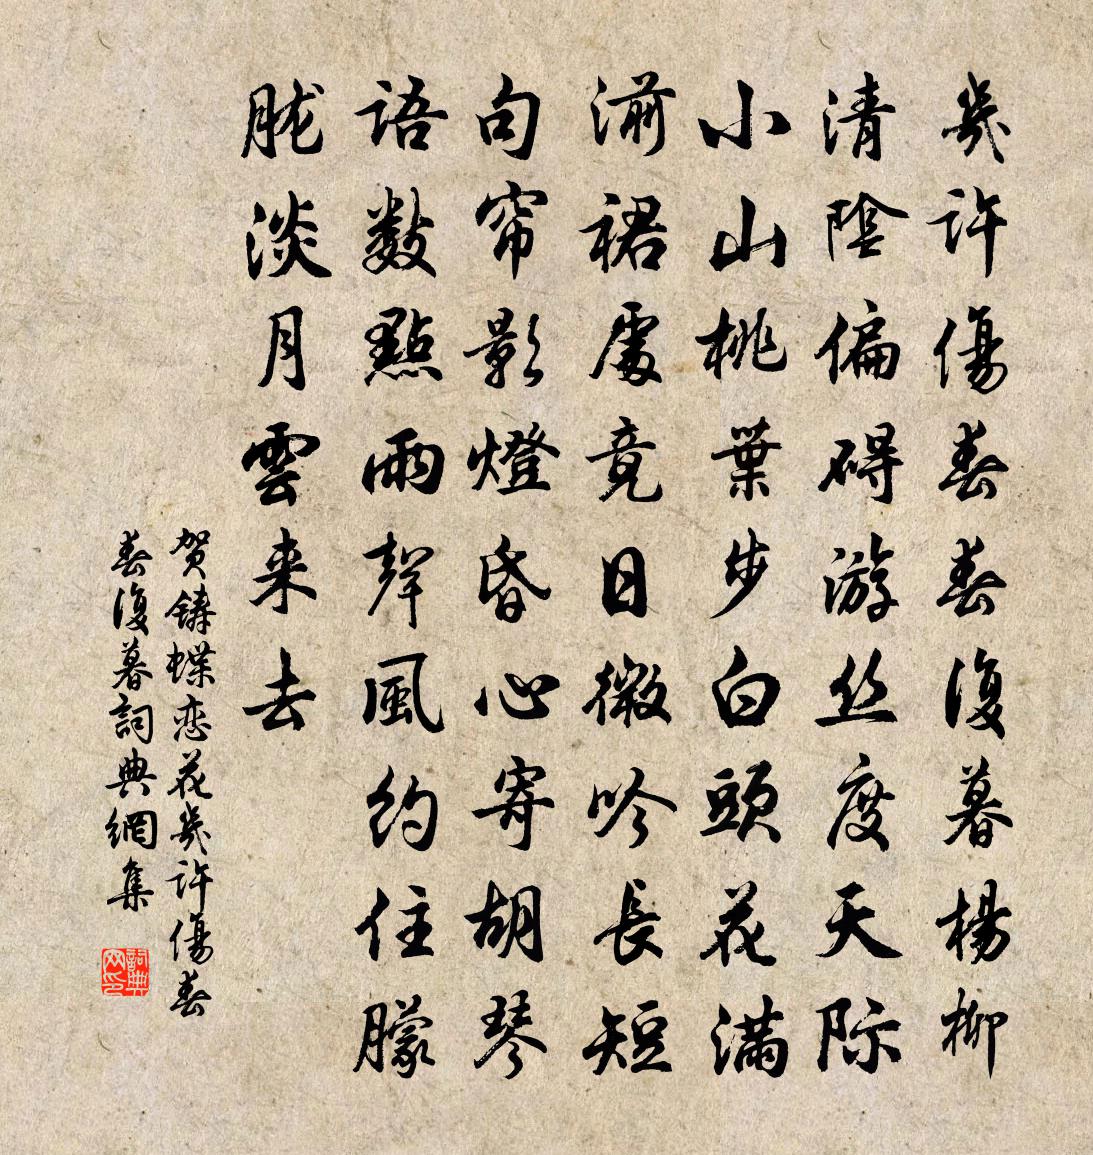 幾許傷春春復暮楊柳
清陰偏碍游丝度天际
小山桃葉步白頭花滿
湔裙處竟日微吟長短
句帘影燈昏心寄胡琴
语數點雨聲風約住朦
胧淡月雲来去
贺鑄蝶恋花幾許傷春
春復暮詞典網集
詞典网印